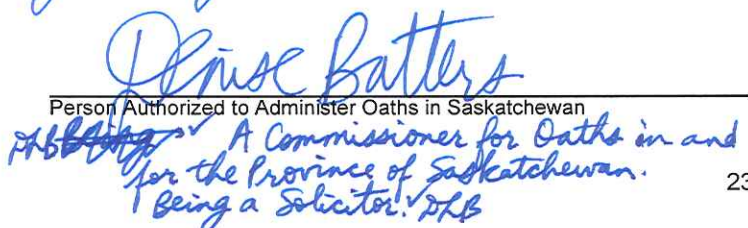 Denise Batters
Person Authorized to Administer Oaths in Saskatchewan
DLB Being A Commissioner for Oaths in and
for the Province of Saskatchewan.
Being a Solicitor. DLB
23